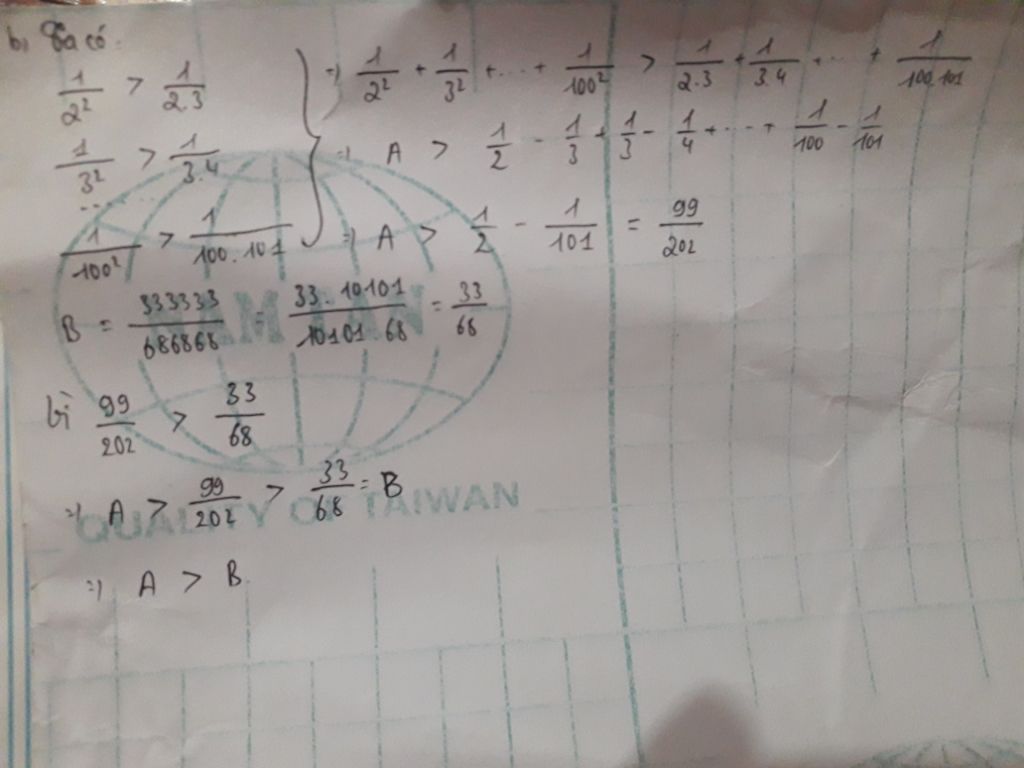 b, Ta có:
1/2² > 1/2.3
1/3² > 1/3.4
.......
1/100² > 1/100.101
=) 1/2² + 1/3² + ... + 1/100² > 1/2.3 + 1/3.4 + ... + 1/100.101
=) A > 1/2 - 1/3 + 1/3 - 1/4 + ... + 1/100 - 1/101
=) A > 1/2 - 1/101 = 99/202
B = 333333/686868 = 33.10101/10101.68 = 33/68
Vì 99/202 > 33/68
=) A > 99/202 > 33/68 = B
=) A > B.
QUALITY OF TAIWAN